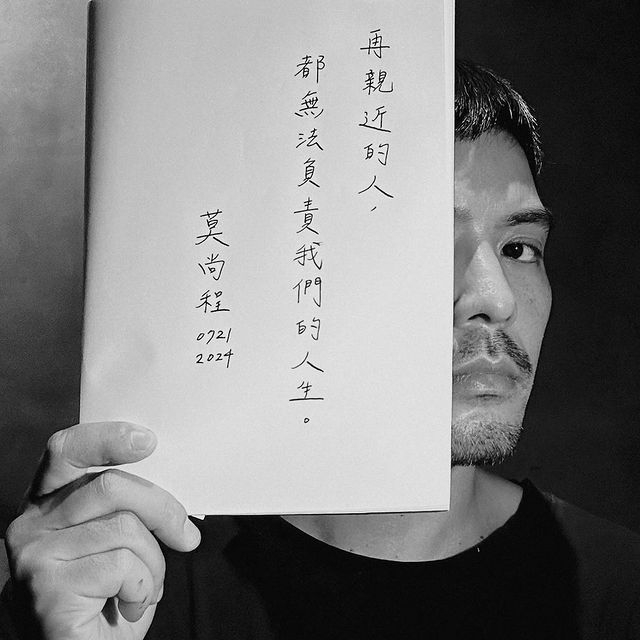 再親近的人，
都無法負責我們的人生。
莫尚程
0721
2024